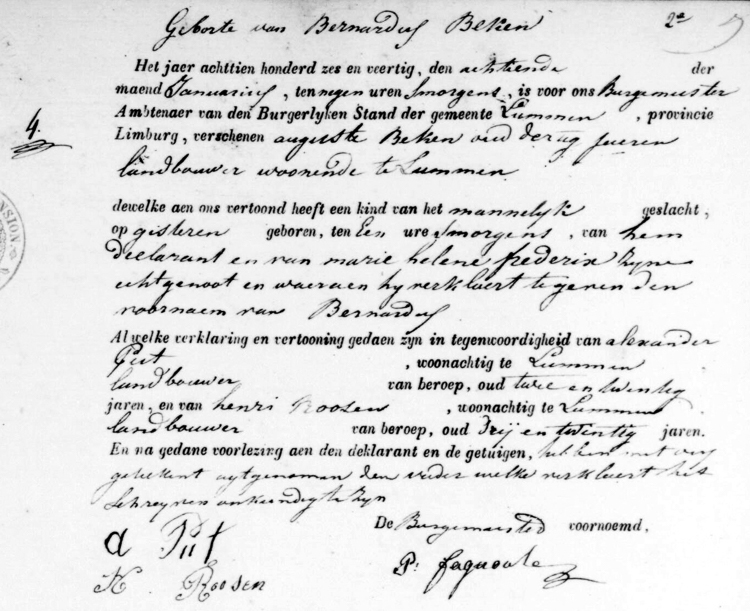 2e
Geboorte van Bernardus Beken
Het jaer achttien honderd zes en veertig, den achtiende der
4. maend Januarius, ten negen uren Smorgens, is voor ons Burgemeester
Ambtenaer van den Burgerlyken Stand der gemeente Lummen, provincie
Limburg, verschenen auguste Beken oud dertig jaeren
landbouwer woonende te Lummen
NSION
dewelke aen ons vertoond heeft een kind van het mannelyk geslacht,
op gisteren geboren, ten Een ure smorgens, van hem
declarant en van marie helene frederix zyne
echtgenoot en waeraen hy verklaert te geven den
voornaem van Bernardus
Al welke verklaring en vertooning gedaen zyn in tegenwoordigheid van alexander
Put, woonachtig te Lummen
landbouwer van beroep, oud twee en twintig
jaren, en van henri Roosen, woonachtig te Lummen
landbouwer van beroep, oud drij en twintig jaren.
En na gedane voorlezing aen den deklarant en de getuigen, hebben met ons
getekent uytgenomen den vader welke verklaert het
schreyven onkundig te zyn
De Burgemeester voornoemd,
a Put
H Roosen